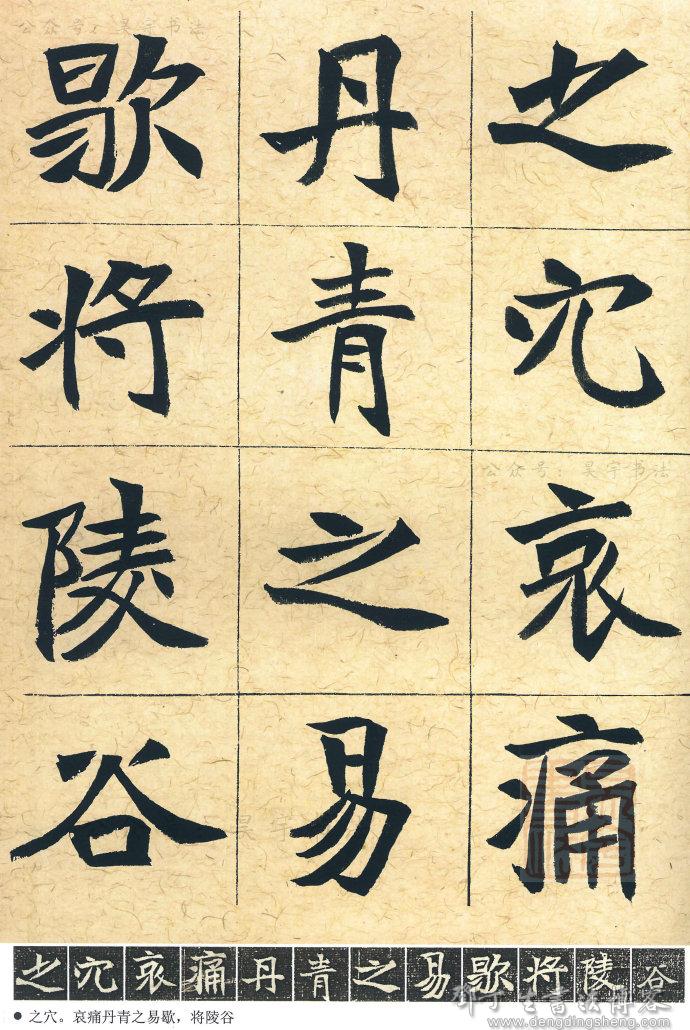 公众号：昊宇书法
之穴哀痛
丹青之易
歇将陵谷
公众号：昊宇书法
之穴哀痛丹青之易歇将陵谷
● 之穴。哀痛丹青之易歇，将陵谷
www.dengdingsheng.com